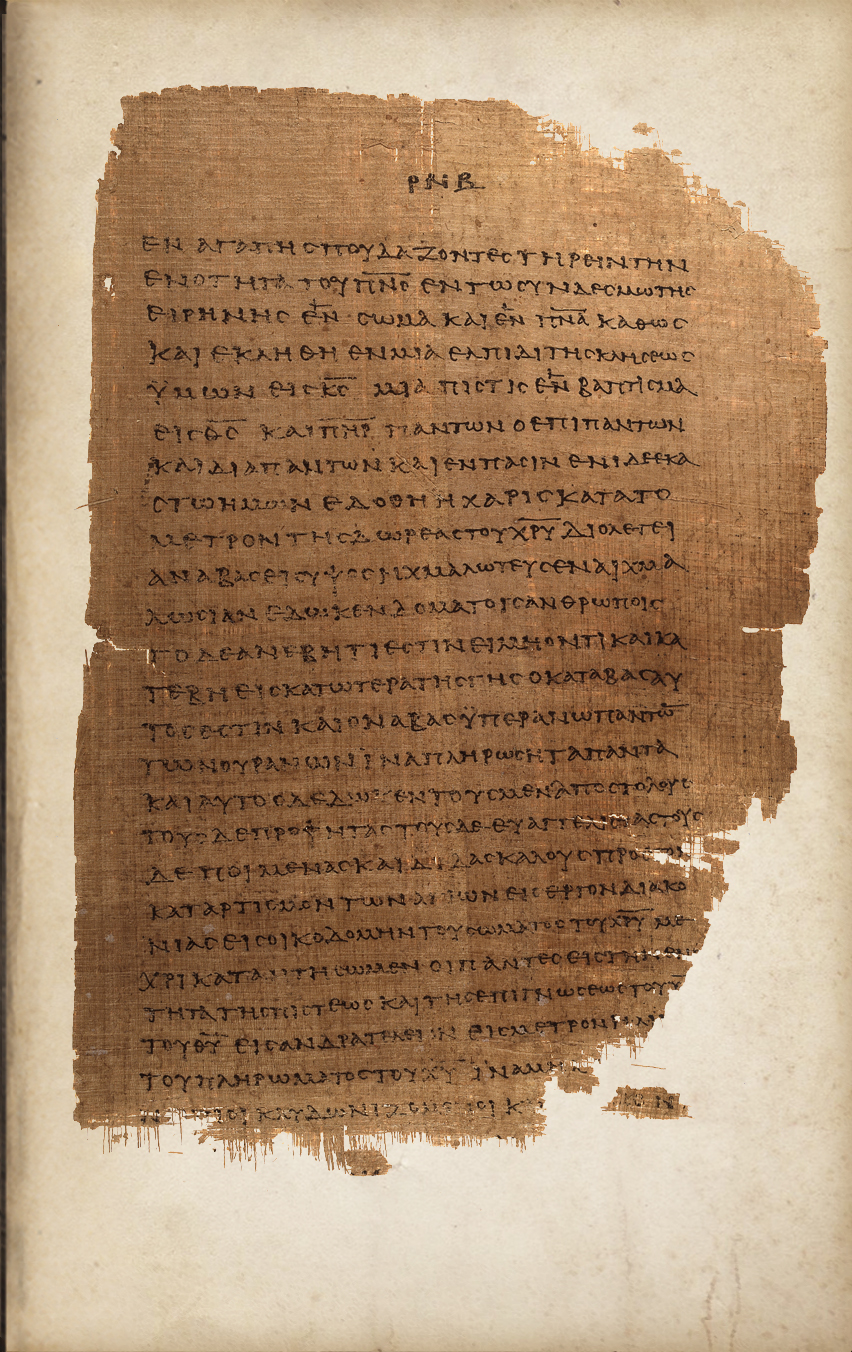 ΡΝΒ
ΕΝ ΑΓΑΠΗ ϹΠΟΥΔΑΖΟΝΤΕϹ ΤΗΡΕΙΝ ΤΗΝ
ΕΝΟΤΗΤΑ ΤΟΥ Π̅Ν̅Ϲ̅ ΕΝ ΤΩ ϹΥΝΔΕϹΜΩ ΤΗϹ
ΕΙΡΗΝΗϹ ΕΝ ϹΩΜΑ ΚΑΙ ΕΝ Π̅Ν̅Α̅ ΚΑΘΩϹ
ΚΑΙ ΕΚΛΗΘΗ ΕΝ ΜΙΑ ΕΛΠΙΔΙ ΤΗϹ ΚΛΗϹΕΩϹ
ΥΜΩΝ ΕΙϹ Κ̅Ϲ̅ ΜΙΑ ΠΙϹΤΙϹ ΕΝ ΒΑΠΤΙϹΜΑ
ΕΙϹ Θ̅Ϲ̅ ΚΑΙ Π̅Η̅Ρ̅ ΠΑΝΤΩΝ Ο ΕΠΙ ΠΑΝΤΩΝ
ΚΑΙ ΔΙΑ ΠΑΝΤΩΝ ΚΑΙ ΕΝ ΠΑϹΙΝ ΕΝΙ ΔΕ ΕΚΑ
ϹΤΩ ΗΜΩΝ ΕΔΟΘΗ Η ΧΑΡΙϹ ΚΑΤΑ ΤΟ
ΜΕΤΡΟΝ ΤΗϹ ΔΩΡΕΑϹ ΤΟΥ Χ̅Ρ̅Υ̅ ΔΙΟ ΛΕΓΕΙ
ΑΝΑΒΑϹ ΕΙϹ ΥΨΟϹ ΗΧΜΑΛΩΤΕΥϹΕΝ ΑΙΧΜΑ
ΛΩϹΙΑΝ ΕΔΩΚΕΝ ΔΟΜΑΤΑ ΤΟΙϹ ΑΝΘΡΩΠΟΙϹ
ΤΟ ΔΕ ΑΝΕΒΗ ΤΙ ΕϹΤΙΝ ΕΙ ΜΗ ΟΝΤΙ ΚΑΙ ΚΑ
ΤΕΒΗ ΕΙϹ ΚΑΤΩΤΕΡΑ ΤΗϹ ΓΗϹ Ο ΚΑΤΑΒΑϹ ΑΥ
ΤΟϹ ΕϹΤΙΝ ΚΑΙ Ο ΝΑΒΑϹ ΥΠΕΡΑΝΩ ΠΑΝΤΩ̅
ΤΩΝ ΟΥΡΑΝΩΝ ΙΝΑ ΠΛΗΡΩϹΗ ΤΑ ΠΑΝΤΑ
ΚΑΙ ΑΥΤΟϹ ΔΕΔΩΚΕΝ ΤΟΥϹ ΜΕΝ ΑΠΟϹΤΟΛΟΥϹ
ΤΟΥϹ ΔΕ ΠΡΟΦΗΤΑϹ ΤΟΥϹ ΔΕ ΕΥΑΓΓΕΛΙϹΤΑϹ ΤΟΥϹ
ΔΕ ΠΟΙΜΕΝΑϹ ΚΑΙ ΔΙΔΑϹΚΑΛΟΥϹ ΠΡΟϹ ΤΟΝ
ΚΑΤΑΡΤΙϹΜΟΝ ΤΩΝ ΑΓΙΩΝ ΕΙϹ ΕΡΓΟΝ ΔΙΑΚΟ
ΝΙΑϹ ΕΙϹ ΟΙΚΟΔΟΜΗΝ ΤΟΥ ϹΩΜΑΤΟϹ ΤΟΥ Χ̅Ρ̅Υ̅ ΜΕ
ΧΡΙ ΚΑΤΑΝΤΗϹΩΜΕΝ ΟΙ ΠΑΝΤΕϹ ΕΙϹ ΤΗΝ ΕΝΟ
ΤΗΤΑ ΤΗϹ ΠΙϹΤΕΩϹ ΚΑΙ ΤΗϹ ΕΠΙΓΝΩϹΕΩϹ ΤΟΥ
ΤΟΥ Θ̅Υ̅ ΕΙϹ ΑΝΔΡΑ ΤΕΛΕΙΟΝ ΕΙϹ ΜΕΤΡΟΝ
ΤΟΥ ΠΛΗΡΩΜΑΤΟϹ ΤΟΥ Χ̅Υ̅ ΙΝΑ ΜΗ
ΚΛΥΔΩΝΙΖΟΜΕΝΟΙ Κ